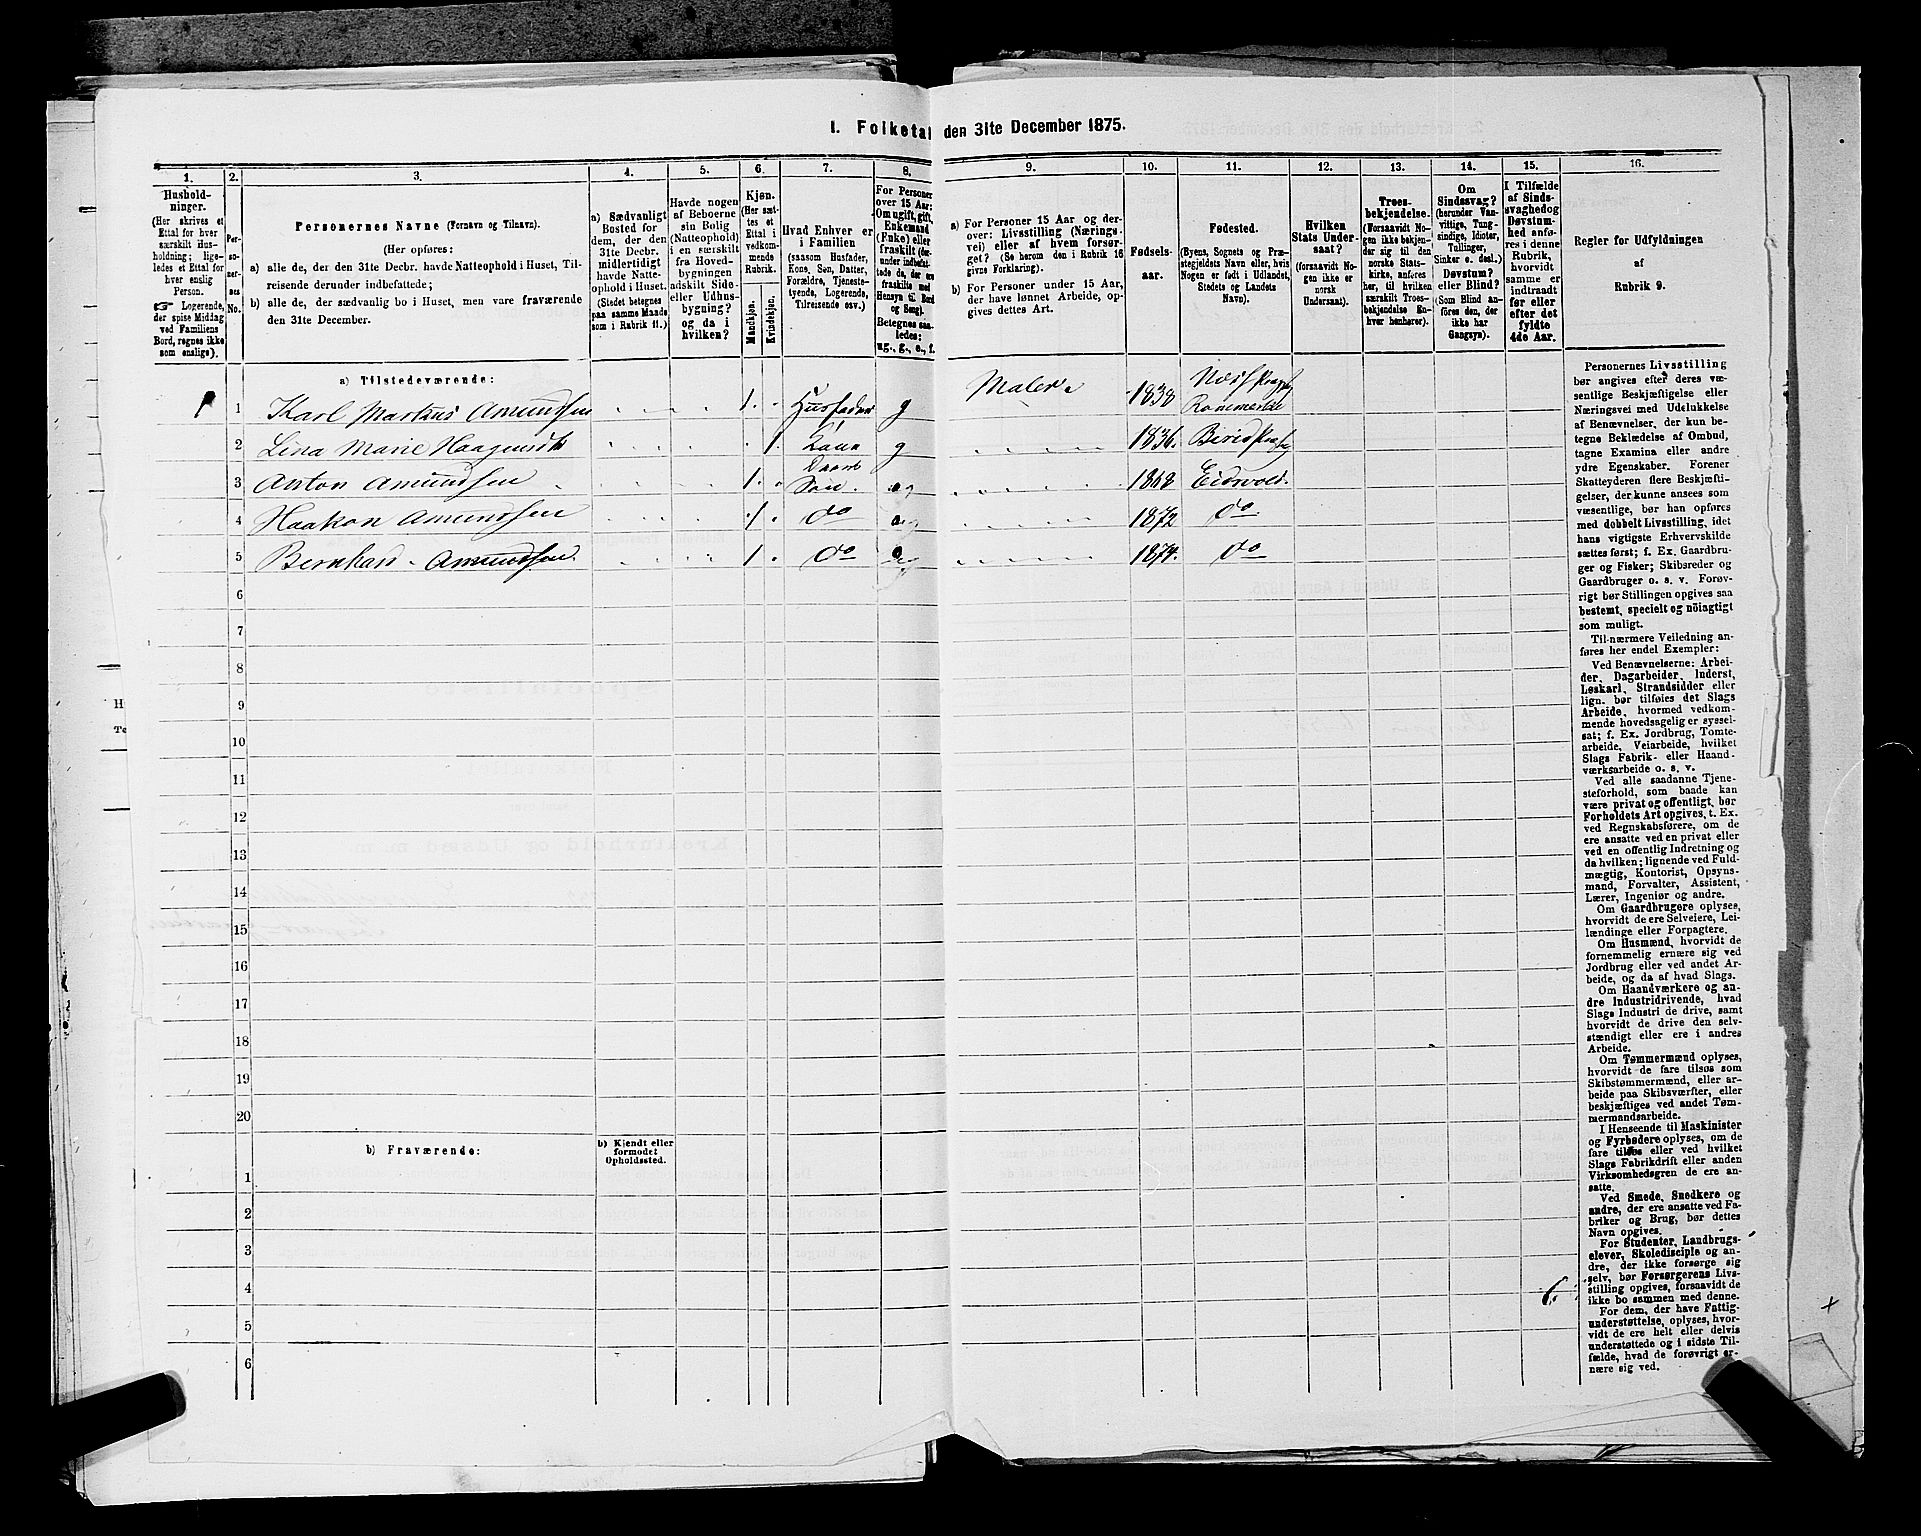 I. Folketal den 31te December 1875.
1. 2. 3. 4. 5. 6. 7. 8. 9. 10. 11. 12. 13. 14. 15. 16.
Hushold-
ninger.
(Her skrives et
Ettal for hver
særskilt Hus-
holdning; lige-
ledes et Ettal for
hver enslig
Person.
☞ Logerende,
der spise Middag
ved Familiens
Bord, regnes ikke
som enslige).
Per-
so-
ner-
nes
No.
Personernes Navne (Fornavn og Tilnavn).
(Her opføres:
a) alle de, der den 31te Decbr. havde Natteophold i Huset, Til-
reisende derunder indbefattede;
b) alle de, der sædvanlig bo i Huset, men vare fraværende
den 31te December.
a) Sædvanligt
Bosted for
dem, der den
31te Decbr.
midlertidigt
havde Natte-
ophold i Huset.
(Stedet betegnes
paa samme Maade
som i Rubrik 11.)
Havde nogen
af Beboerne
sin Bolig
(Natteophold)
i en særskilt
fra Hoved-
bygningen
adskilt Side-
eller Udhus-
bygning?
og da i
hvilken?
Kjøn.
(Her sæt-
tes et
Ettal i
vedkom-
mende
Rubrik.
Mandkjøn.
Kvindekjøn.
Hvad Enhver er
i Familien
(saasom Husfader,
Kone, Søn, Datter,
Forældre, Tjeneste-
tyende, Logerende,
Tilreisende osv.)
For Personer
over 15 Aar:
Om ugift, gift,
Enkemand
(Enke) eller
fraskilt (der-
under indbefat-
tede de, der ere
fraskilte med
Hensyn til Bord
og Seng).
Betegnes saa-
ledes:
ug., g., e., f.
a) For Personer 15 Aar og der-
over: Livsstilling (Nærings-
vei) eller af hvem forsør-
get? (Se herom den i Rubrik 16
givne Forklaring).
b) For Personer under 15 Aar,
der have lønnet Arbeide, op-
gives dettes Art.
Fødsels-
aar.
Fødested.
(Byens, Sognets og Præ-
stegjeldets Navn eller, hvis
Nogen er født i Udlandet,
Stedets og Landets
Navn).
Hvilken
Stats Under-
saat?
(forsaavidt No-
gen ikke er
norsk
Undersaat).
Troes-
bekjendelse.
(Forsaavidt No-
gen ikke bekjen-
der sig til den
norske Stats-
kirke, anføres
her, til hvilken
særskilt Troes-
bekjendelse En-
hver henhører).
Om
Sindssvag?
(herunder Van-
vittige, Tung-
sindige, Idioter,
Tullinger,
Sinker o. desl.)
Døvstum?
eller Blind?
(Som Blind an-
føres den, der
ikke har
Gangsyn).
I Tilfælde
af Sinds-
svaghed og
Døvstum-
hed anfø-
res i denne
Rubrik,
hvorvidt
samme er
indtraadt
før eller
efter det
fyldte
4de Aar.
Regler for Udfyldningen
af
Rubrik 9.
a) Tilstedeværende:
1 1 Karl Markus Amundsen 1. Husfader g Maler 1838
2 Lina Marie 1. Kone g 1836.
3 Anton Amundsen 1. Søn. 1868 Eidsvold.
4 Haakon Amundsen 1. do 1872 do
5 Bernhard Amundsen. 1. do 1874. do
6
7
8
9
10
11
12
13
14
15
16
17
18
19
20
b) Fraværende:
b) Kjendt eller
formodet
Opholdssted.
1
2
3
4
5
6
6.
Personernes Livsstilling
bør angives efter deres væ-
sentlige Beskjæftigelse eller
Næringsvei med Udelukkelse
af Benævnelser, der kun be-
tegne Beklædelse af Ombud,
tagne Examina eller andre
ydre Egenskaber. Forener
Skatteyderen flere Beskjæfti-
gelser, der kunne ansees som
væsentlige, bør han opføres
med dobbelt Livsstilling, idet
hans vigtigste Erhvervskilde
sættes først; f. Ex. Gaardbru-
ger og Fisker; Skibsreder og
Gaardbruger o. s. v. Forøv-
rigt bør Stillingen opgives saa
bestemt, specielt og nöiagtigt
som muligt.
Til nærmere Veiledning an-
føres her endel Exempler:
Ved Benævnelserne: Arbei-
der, Dagarbeider, Inderst,
Løskarl, Strandsidder eller
lign. bør tilføies det Slags
Arbeide, hvormed vedkom-
mende hovedsagelig er syssel-
sat; f. Ex. Jordbrug, Tomte-
arbeide, Veiarbeide, hvilket
Slags Fabrik- eller Haand-
værksarbeide o. s. v.
Ved alle saadanne Tjene-
steforhold, som baade kan
være privat og offentligt, bør
Forholdets Art opgives, t. Ex.
ved Regnskabsførere, om de
ere ansatte ved en privat eller
ved en offentlig Indretning og
da hvilken; lignende ved Fuld-
mægtig, Kontorist, Opsyns-
mand, Forvalter, Assistent,
Lærer, Ingeniør og andre.
Om Gaardbrugere oplyses,
hvorvidt de ere Selveiere, Lei-
lændinge eller Forpagtere.
Om Husmænd, hvorvidt de
fornemmelig ernære sig ved
Jordbrug eller ved andet Ar-
beide, og da af hvad Slags.
Om Haandværkere og an-
dre Industridrivende, hvad
Slags Industri de drive, samt
hvorvidt de drive den selv-
stændigt eller ere i andres
Arbeide.
Om Tømmermænd oplyses,
hvorvidt de fare tilsøs som
Skibstømmermænd, eller ar-
beide paa Skibsværfter, eller
beskjæftiges ved andet Tøm-
mermandsarbeide.
I Henseende til Maskinister
og Fyrbødere oplyses, om de
fare tilsøs eller ved hvilket
Slags Fabrikdrift eller anden
Virksomhedsgren de ere an-
satte.
Ved Smede, Snedkere og
andre, der ere ansatte ved Fa-
briker og Brug, bør dettes
Navn opgives.
For Studenter, Landbrugs-
elever, Skoledisciple og an-
dre, der ikke forsørge sig
selv, bør Forsørgerens Livs-
stilling opgives, forsaavidt de
ikke bo sammen med denne.
For dem, der have Fattig-
understøttelse, oplyses, hvor-
vidt de ere helt eller delvis
understøttede og i sidste Til-
fælde, hvad de forøvrigt er-
nære sig ved.